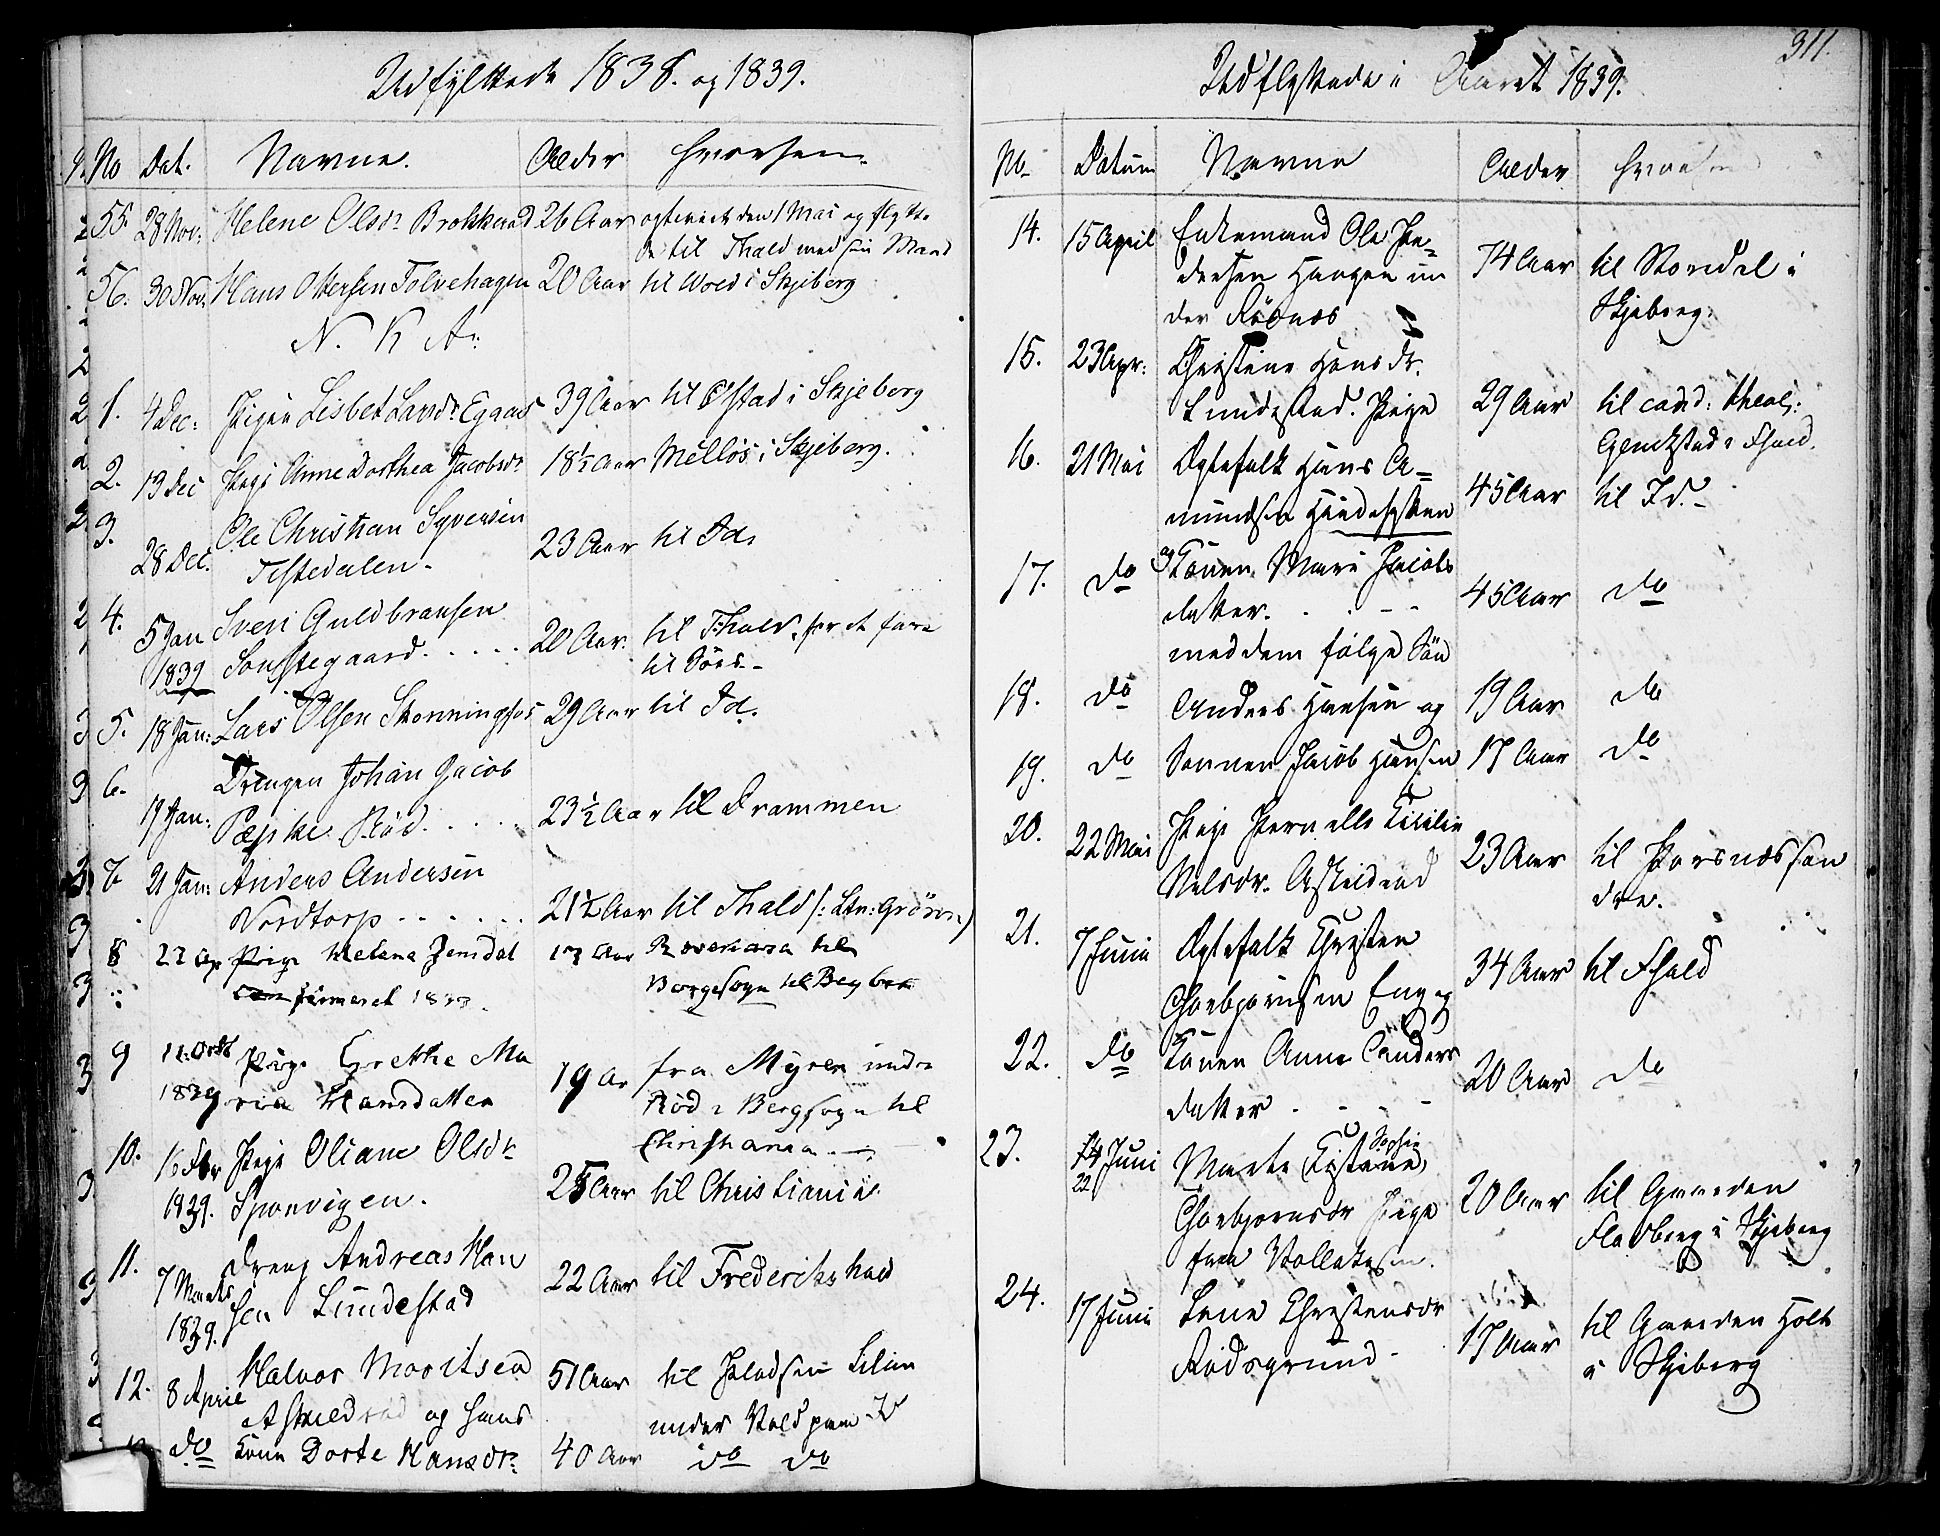 Udfylttede 1838. og 1839.
No Dat. Navne. Alder Hvorhen.
55. 28 Nov: Helene Olsdr Brokkerød 26 Aar ægteviet den 1 Mai og flytte
de til Fhald med sin Mand
56. 30 Nov: Hans Ottersen Tolvehagen 20 Aar til Woed i Skjeberg
N. K. A:
1. 4 Dec: Pigen Lisbet Larsdr Eggnes 39 Aar til Olstad i Skjeberg
2. 13 Dec Pige Anne Dorthea Jacobsdr 18½ Aar Melløs i Skjeberg.
3. 28 Dec. Ole Christian Syversen
Tistedalen. 23 Aar til Id.
4. 5 Jan 1839 Sven Guldbransen
Sonstegaard. 20 Aar. til Fhald, for at fare
til Söes.
5. 18 Jan: Lars Olsen Skonningfos 29 Aar til Id.
6. 19 Jan: Drengen Johan Jacob
Pæpke Röd. 23½ Aar til Drammen
7 21 Jan: Anders Andersen
Nordtorp 21½ Aar til Fhald (: Ltn: Grörn:)
8 22 Ap Pige Helena Femdal 17 Aar Rosenara til
confirmeret 1833. Borgesogn til Begbye
9 11. Octb 1839 Pige Grethe Ma
ria Hansdatter 19 Ar fra Myren under
Röd i Bergsogn til
Christiania
10. 16 Febr 1839. Pige Oliane Olsdr
Sponvigen. 25 Aar til Christiania
11. 7 Marts 1839. Dreng Andreas Han
sen Lundestad 22 Aar til Frederikshald
12. 8 April Halvor Moritsen
Askeldrød og hans 51 Aar til Pladsen Lilien
under Veldpam Id
do Kone Dorte Hansdr. 40 Aar do do
311.
Udflyttede i Aaret 1839.
No Datum Navne Alder Hvorhen
14. 15 April Enkemand Ole Pe-
dersen Haagen un
der Rödnæs 74 Aar til Stordal i
Skjeberg.
15. 23 Apr: Christine Hansdr.
Lundestad. Pige 29 Aar til cand: theol:
Gjerdstad i Fhald.
16. 21 Mai Ægtefolk Hans A-
mundsen Hindesytten 45 Aar til Id.
17. do og Konen Mari Jacobs
datter. 45 Aar do
med dem følge Søn
18. do Anders Hansen og 19 Aar do
19. do Sønnen Jacob Hansen 17 Aar do
20. 22 Mai Pige Pernelle Cicilie
Nelsdr. Askeldrød 23 Aar til Porsnæs søn
dre.
21. 7 Juni Ægtefolk Christen
Thorbjørnsen Eng og 34 Aar til Fhald
22. do Konen Anne Anders
datter 20 Aar do
23. 14 Juni 22 Marte Kistane Sophie
Thorbjørnsdr Pige
fra Vollekasen. 20 Aar til Gaarden
Fladberg i Skjeberg
24. 17 Juni Lene Christensdr
Rødsgrund 17 Aar til Gaarden Holt
i Skjeberg